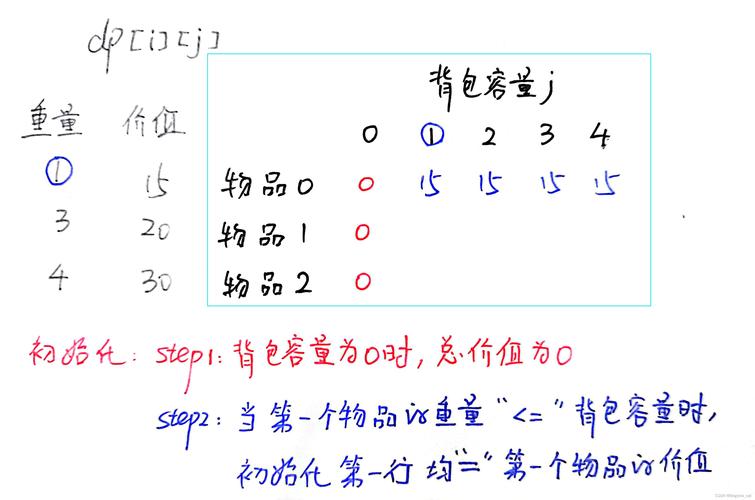 dp[i][j]
背包容量j
重量 价值
0 ① 2 3 4
① 15 物品0 0 15 15 15 15
3 20 物品1 0
4 30 物品2 0
初始化: step1:背包容量为0时,总价值为0
step2: 当第一个物品的重量"<="背包容量时,
初始化第一行均"="第一个物品的价值